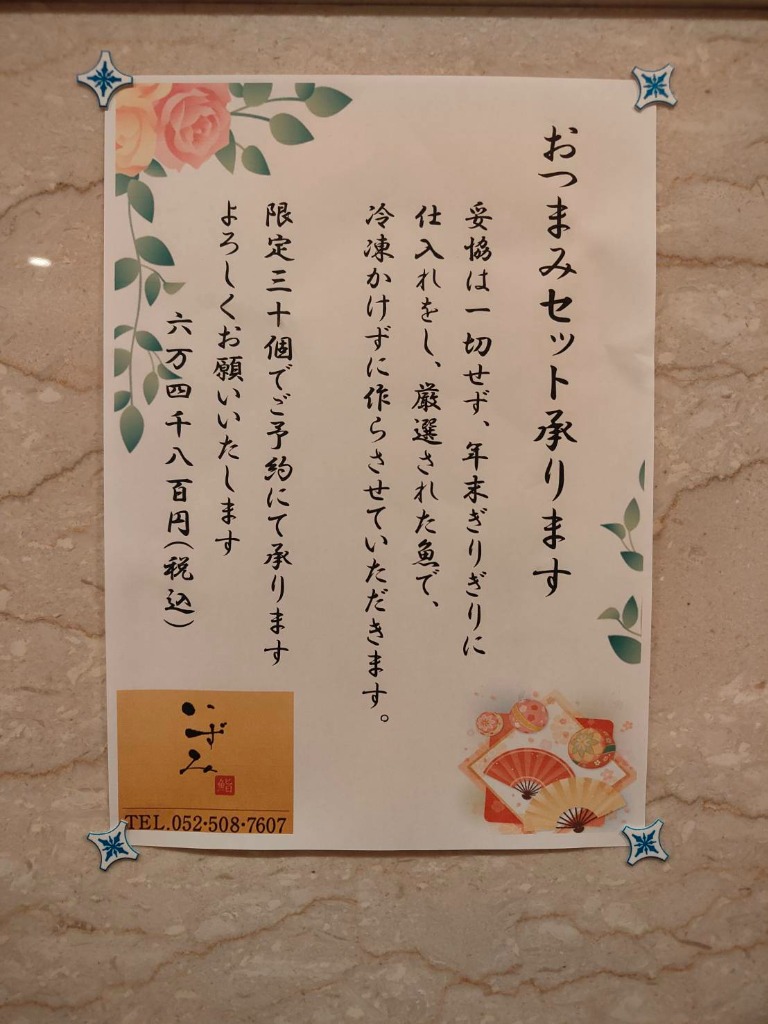 おつまみセット承ります
妥協は一切せず、年末ぎりぎりに
仕入れをし、厳選された魚で、
冷凍かけずに作らさせていただきます。
限定三十個でご予約にて承ります
よろしくお願いいたします
六万四千八百円(税込)
いずみ
鮨
TEL.052・508・7607